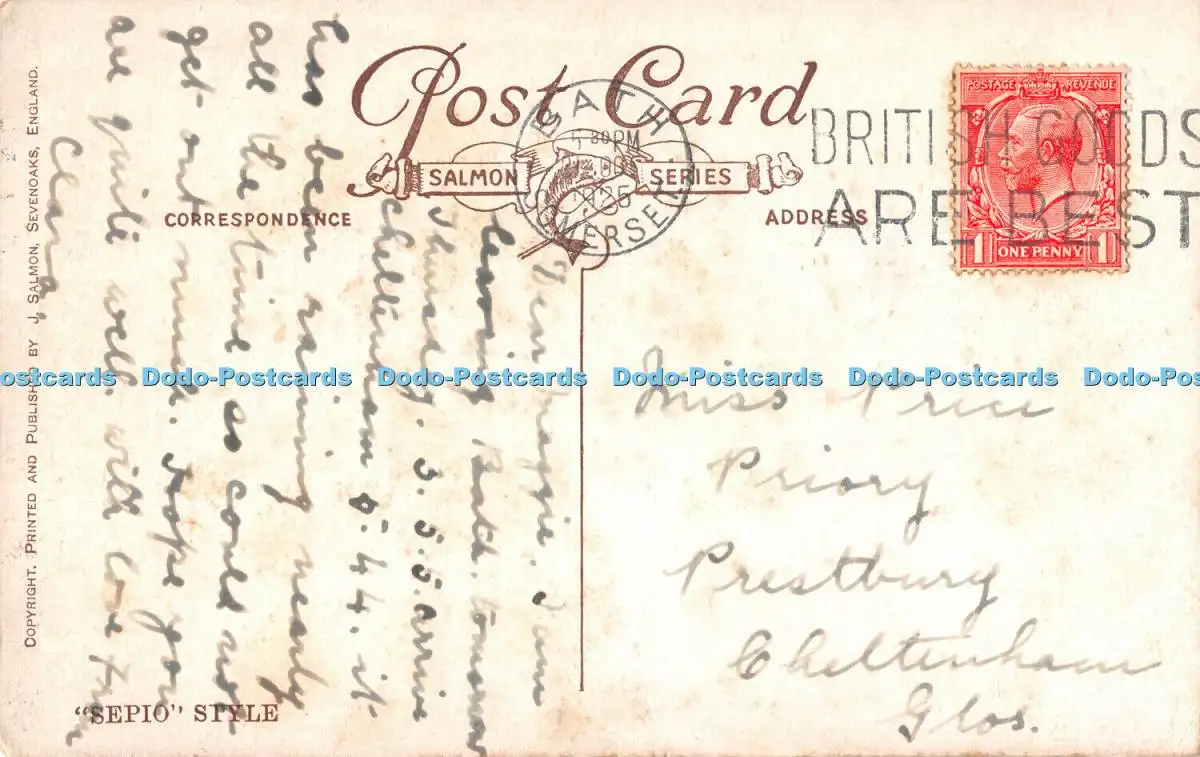 Post Card
SALMON SERIES
CORRESPONDENCE
ADDRESS
BATH
30PM
1925
SOMERSET
BRITISH GOODS
ARE BEST
POSTAGE REVENUE
1 ONE PENNY 1
Dear Maggie. I am
leaving Bath. tomorrow
Thursday. 3.5.5. arrive
Cheltenham 5.44. it
has been raining nearly
all the time so could not
get out much. hope you
are quite well. with love from
Clara
Miss Price
Priory
Prestbury
Cheltenham
Glos.
"SEPIO" STYLE
COPYRIGHT. PRINTED AND PUBLISHED BY J. SALMON, SEVENOAKS, ENGLAND.
Dodo-Postcards Dodo-Postcards Dodo-Postcards Dodo-Postcards Dodo-Postcards